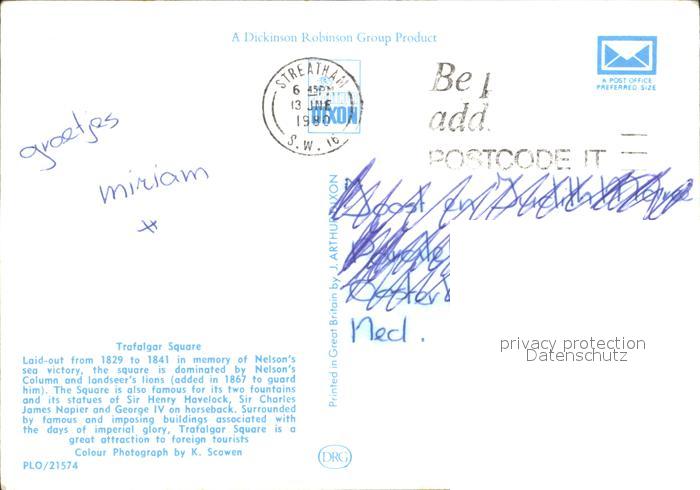 A Dickinson Robinson Group Product
A POST OFFICE
PREFERRED SIZE
STREATHAM
6 45PM
13 JNE
1980
S.W. 16
DIXON
Be p
add
POSTCODE IT
groetjes
miriam
x
Joost en Judith
Ned.
Printed in Great Britain by J. ARTHUR DIXON
privacy protection
Datenschutz
Trafalgar Square
Laid-out from 1829 to 1841 in memory of Nelson's
sea victory, the square is dominated by Nelson's
Column and landseer's lions (added in 1867 to guard
him). The Square is also famous for its two fountains
and its statues of Sir Henry Havelock, Sir Charles
James Napier and George IV on horseback. Surrounded
by famous and imposing buildings associated with
the days of imperial glory, Trafalgar Square is a
great attraction to foreign tourists
Colour Photograph by K. Scowen
PLO/21574
DRG